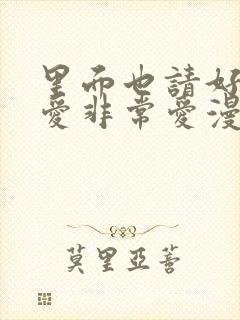 里而也請好
愛非常愛漫
莫里亞蓍